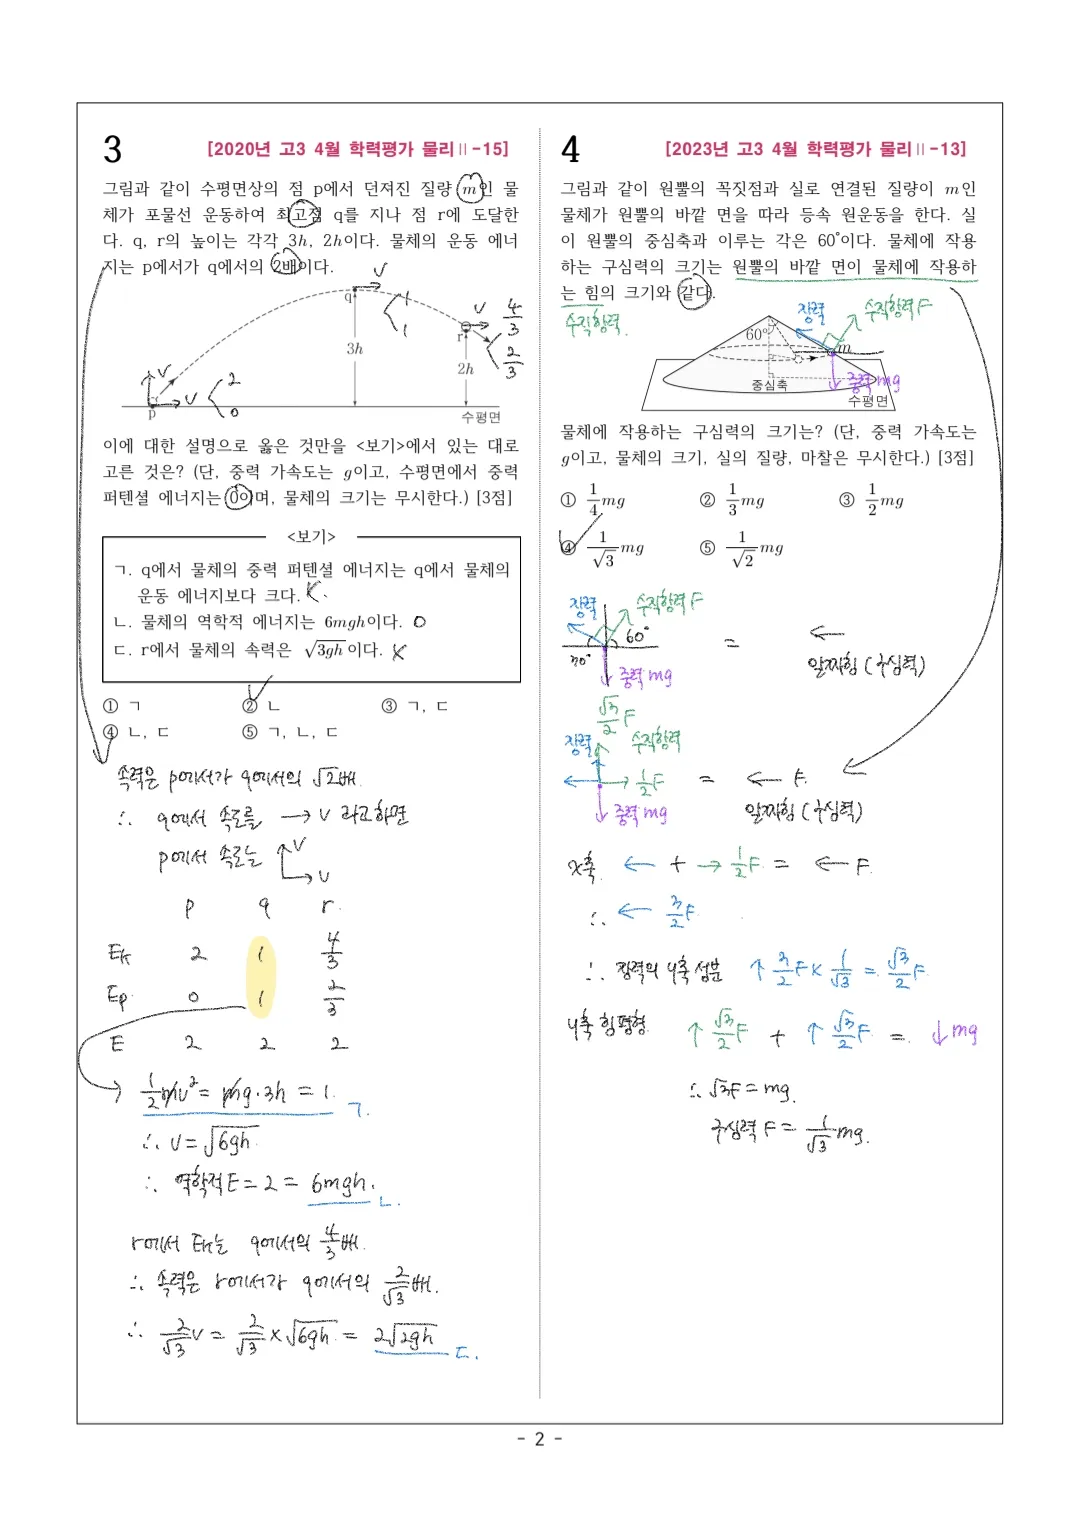 3
[2020년 고3 4월 학력평가 물리Ⅱ-15]
그림과 같이 수평면상의 점 p에서 던져진 질량 m인 물
체가 포물선 운동하여 최고점 q를 지나 점 r에 도달한
다. q, r의 높이는 각각 3h, 2h이다. 물체의 운동 에너
지는 p에서가 q에서의 2배이다.
v
q
1
1
3h
v
r
4/3
2/3
2h
v
v
p
2
0
수평면
이에 대한 설명으로 옳은 것만을 <보기>에서 있는 대로
고른 것은? (단, 중력 가속도는 g이고, 수평면에서 중력
퍼텐셜 에너지는 0이며, 물체의 크기는 무시한다.) [3점]
<보기>
ㄱ. q에서 물체의 중력 퍼텐셜 에너지는 q에서 물체의
운동 에너지보다 크다. X.
ㄴ. 물체의 역학적 에너지는 6mgh이다. O
ㄷ. r에서 물체의 속력은 √3gh 이다. X
① ㄱ ② ㄴ ③ ㄱ, ㄷ
④ ㄴ, ㄷ ⑤ ㄱ, ㄴ, ㄷ
속력은 p에서가 q에서의 √2배
∴ q에서 속도를 → v 라고하면
p에서 속도는 ↑v →v
p q r
Ek 2 1 4/3
Ep 0 1 2/3
E 2 2 2
1/2 mv² = mg·3h = 1. ㄱ.
∴ v = √6gh
∴ 역학적 E = 2 = 6mgh. ㄴ.
r에서 Ek는 q에서의 4/3배.
∴ 속력은 r에서가 q에서의 2/√3배.
∴ 2/√3 v = 2/√3 × √6gh = 2√2gh ㄷ.
4
[2023년 고3 4월 학력평가 물리Ⅱ-13]
그림과 같이 원뿔의 꼭짓점과 실로 연결된 질량이 m인
물체가 원뿔의 바깥 면을 따라 등속 원운동을 한다. 실
이 원뿔의 중심축과 이루는 각은 60°이다. 물체에 작용
하는 구심력의 크기는 원뿔의 바깥 면이 물체에 작용하
는 힘의 크기와 같다.
수직항력
장력
수직항력 F
60°
m
중심축
중력 mg
수평면
물체에 작용하는 구심력의 크기는? (단, 중력 가속도는
g이고, 물체의 크기, 실의 질량, 마찰은 무시한다.) [3점]
① 1/4 mg ② 1/3 mg ③ 1/2 mg
④ 1/√3 mg ⑤ 1/√2 mg
장력 수직항력 F
60°
30°
중력 mg
= ←
알짜힘 (구심력)
√3/2 F
장력 수직항력
→ 1/2 F = ← F.
중력 mg
알짜힘 (구심력)
x축 ← + → 1/2 F = ← F.
∴ ← 3/2 F.
∴ 장력의 y축 성분 ↑ 3/2 F × 1/√3 = √3/2 F
y축 힘평형 ↑ √3/2 F + ↑ √3/2 F = ↓ mg
∴ √3F = mg.
구심력 F = 1/√3 mg.
- 2 -